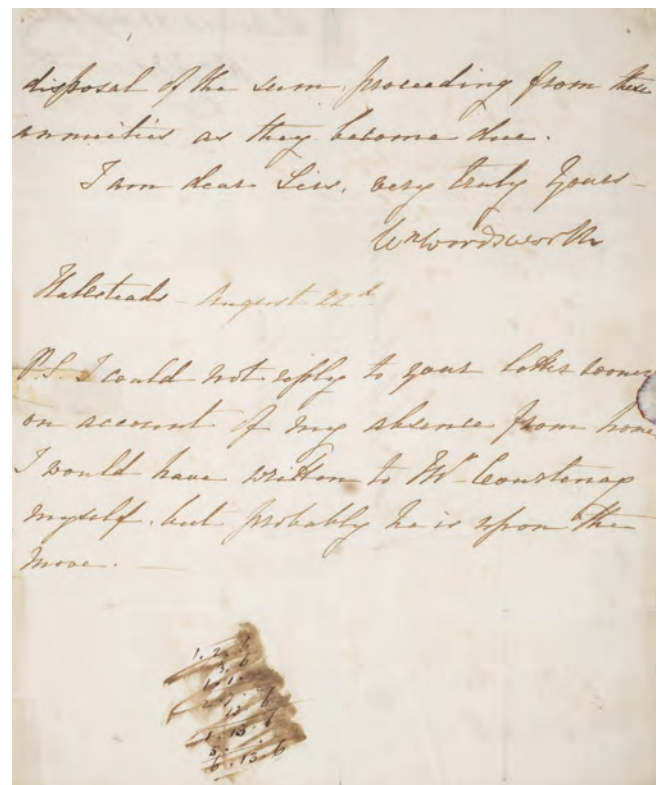 disposal of the sum, proceeding from these
annuities as they become due.
I am dear Sirs, very truly Yours –
Wm Wordsworth
Hallsteads – August 22d
P.S. I could not reply to your letter sooner
on account of my absence from home
I would have written to Mr Courtenay
myself, but probably he is upon the
move. –
1. 2. 6
3. 6
13. 6
1. 13. 6
5.
6. 13. 6